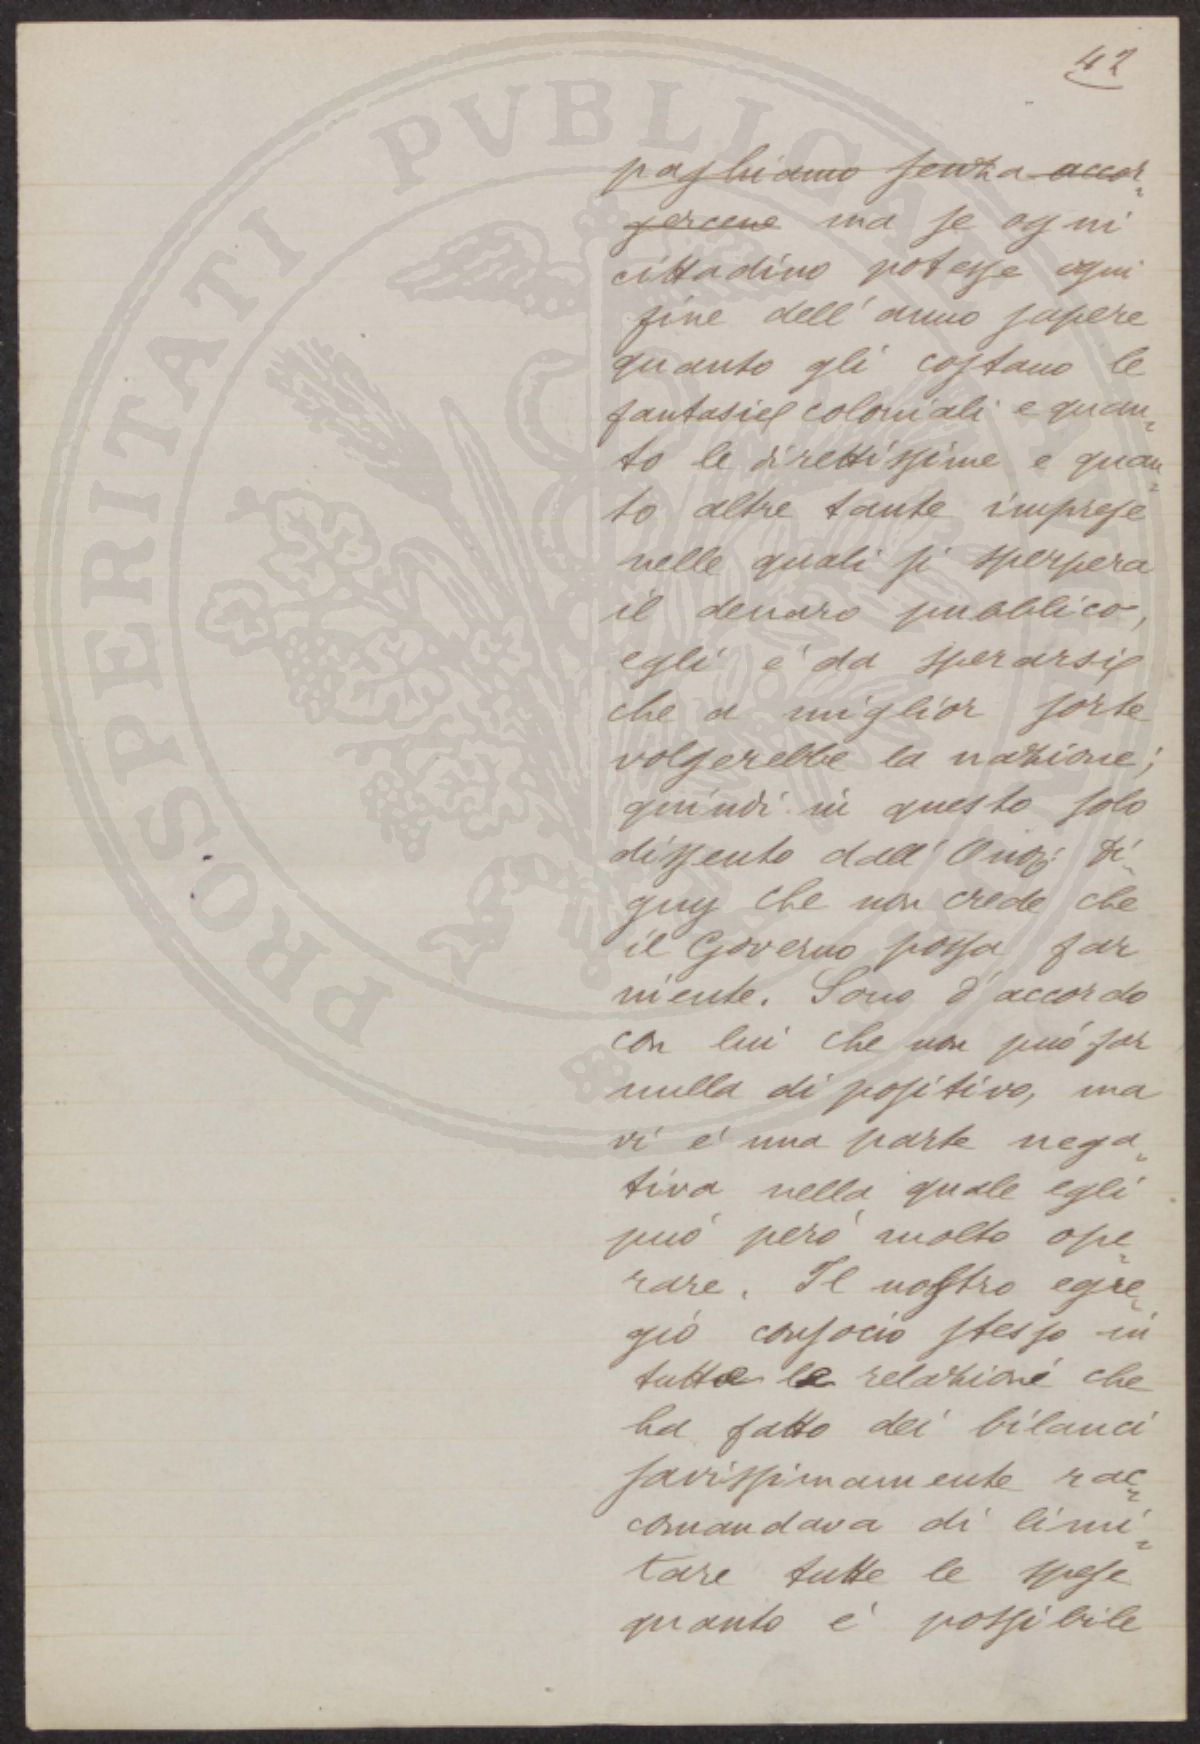 42
paghiamo senza accor-
gercene ma se ogni
cittadino potesse ogni
fine dell'anno sapere
quanto gli costano le
fantasie coloniali e quan-
to le direttissime e quan-
to altre tante imprese
nelle quali si sperpera
il denaro pubblico,
egli é da sperarsi
che a miglior sorte
volgerebbe la nazione;
quindi in questo solo
dissento dall'
che non crede che
il Governo possa far
niente. Sono d'accordo
con lui che non puó far
nulla di positivo, ma
vi é una parte nega-
tiva nella quale egli
puó peró molto ope-
rare. Il nostro egre-
gio consocio stesso in
tutte le relazioni che
ha fatto dei bilanci
savissimamente rac-
comandava di limi-
tare tutte le spese
quanto é possibile
PROSPERITATI PVBLICAE